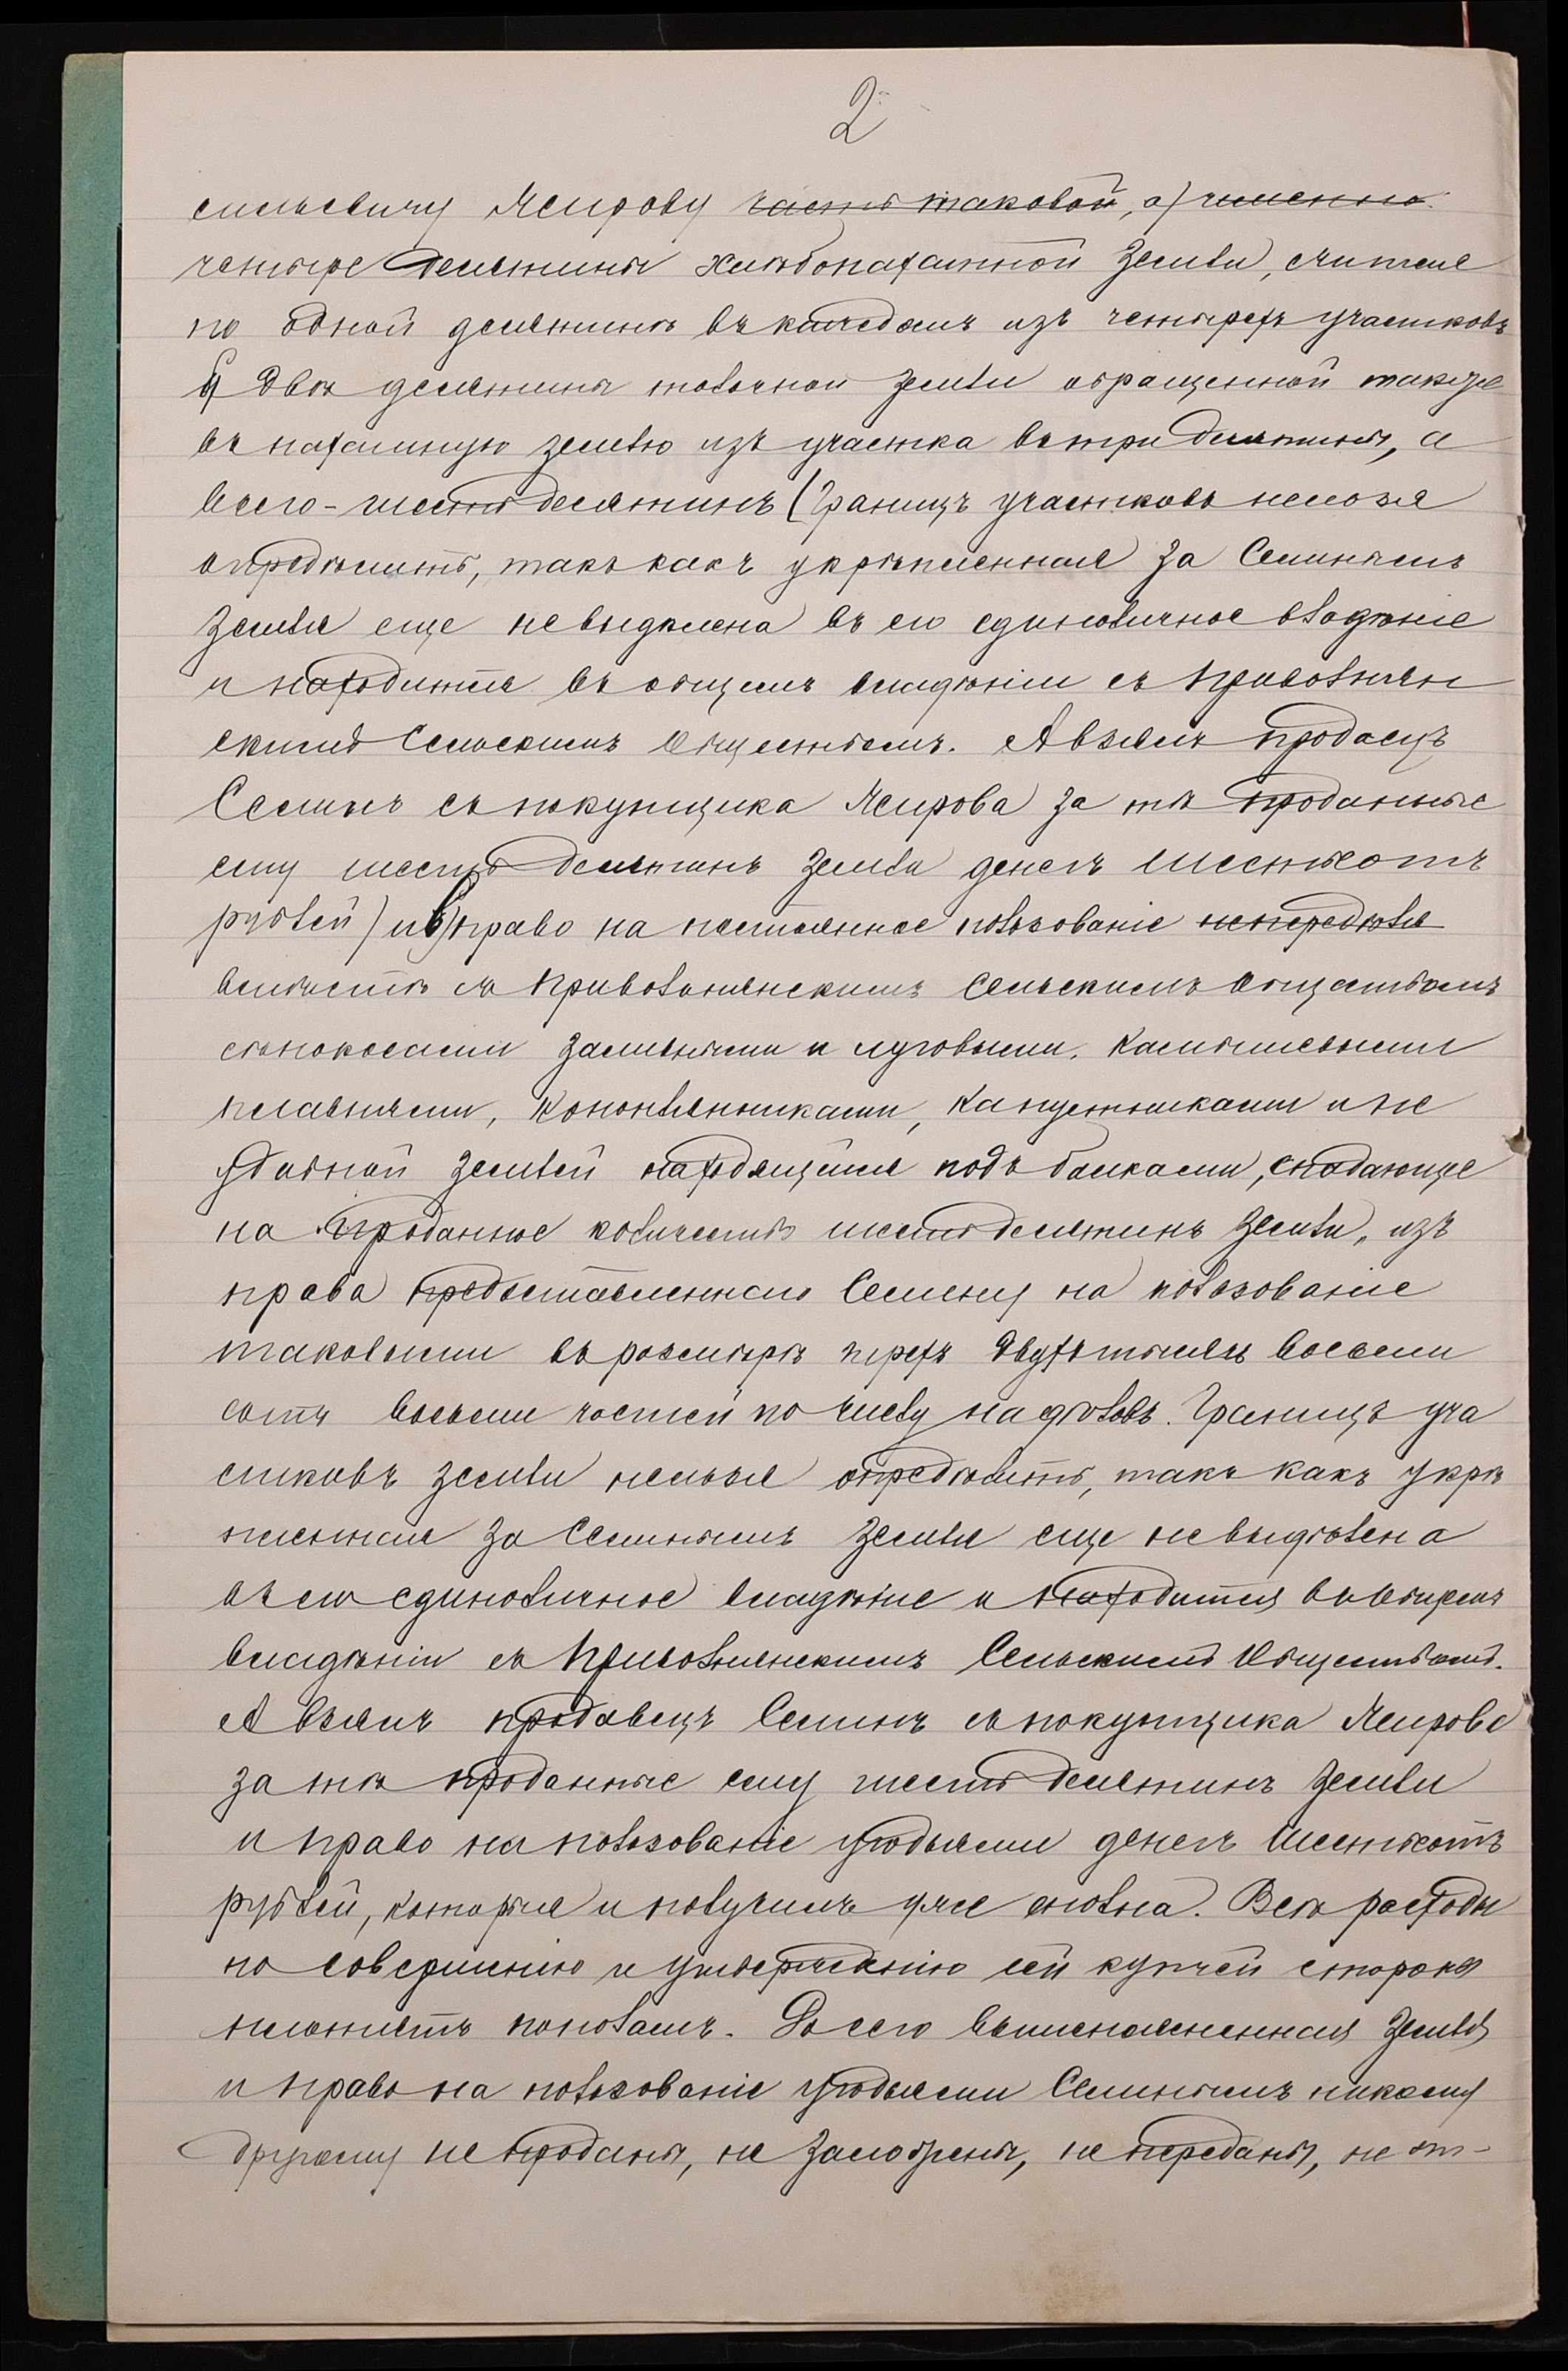 2
сильевичу Ясирову часть таковой, а) именно
четыре десятины хлѣбопахатной земли, считая
по одной десятинѣ въ каждомъ изъ четырехъ участковъ
б) двѣ десятины толочной земли обращенной также
въ пахатную землю изъ участка въ три десятины, а
всего - шесть десятинъ (Границъ участковъ нельзя
опредѣлить, такъ какъ укрѣпленная за Семинымъ
земля еще не выдѣлена въ его единоличное владѣніе
и находится въ общемъ владѣніи съ
скимъ Сельскимъ Обществомъ. А взялъ продавецъ
Семинъ съ покупщика Ясирова за тѣ проданные
ему шесть десятинъ земли денегъ шестьсотъ
рублей) и в) право на постоянное пользованіе непередѣля
емыхъ съ Сельскимъ Обществомъ
сѣнокосами заливными и луговыми, камышевыми
плавнями, коноплянниками, капустниками и не
удобной землей находящейся подъ балками, спадающее
на проданное количество шесть десятинъ земли, изъ
права предоставленнаго Семину на пользованіе
таковыми въ размѣрѣ трехъ двухътысячъ восьми
сотъ восьми частей по числу надѣловъ. Границъ уча
стковъ земли нельзя опредѣлить, такъ какъ укрѣ
пленная за Семинымъ земля еще не выдѣлена
въ его единоличное владѣніе и находится въ общемъ
владѣніи съ Сельскимъ Обществомъ.
А взялъ продавецъ Семинъ съ покупщика Ясирова
за тѣ проданные ему шесть десятинъ земли
и право на пользованіе угодьями денегъ шестьсотъ
рублей, которыя и получилъ уже сполна. Всѣ расходы
по совершенію и утвержденію сей купчей стороны
исполняютъ пополамъ. До сего вышеозначенная земля
и право на пользованіе угодьями Семинымъ никому
другому не проданы, не заложены, не переданы, не от-